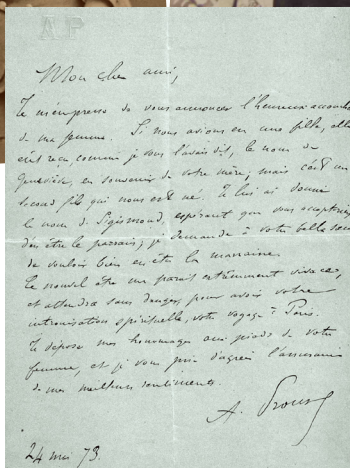 AP
Mon cher ami,
Je m'empresse de vous annoncer l'heureux accouchement
de ma femme. Si nous avions eu une fille, elle
eût reçu comme je vous l'avais dit, le nom de
Geneviève, en souvenir de votre mère, mais c'est un
second fils qui nous est né. Je lui ai donné
le nom de Sigismond, espérant que vous accepteriez
d'en être le parrain; je demande à votre belle sœur
de vouloir bien en être la marraine.
Ce nouvel être me paraît extrêmement vivace,
et attendra sans danger, pour avoir votre
intronisation spirituelle, votre voyage à Paris.
Je dépose mes hommages aux pieds de votre
femme, et je vous prie d'agréer l'assurance
de mes meilleurs sentiments.
A. Proust
24 mai 73.